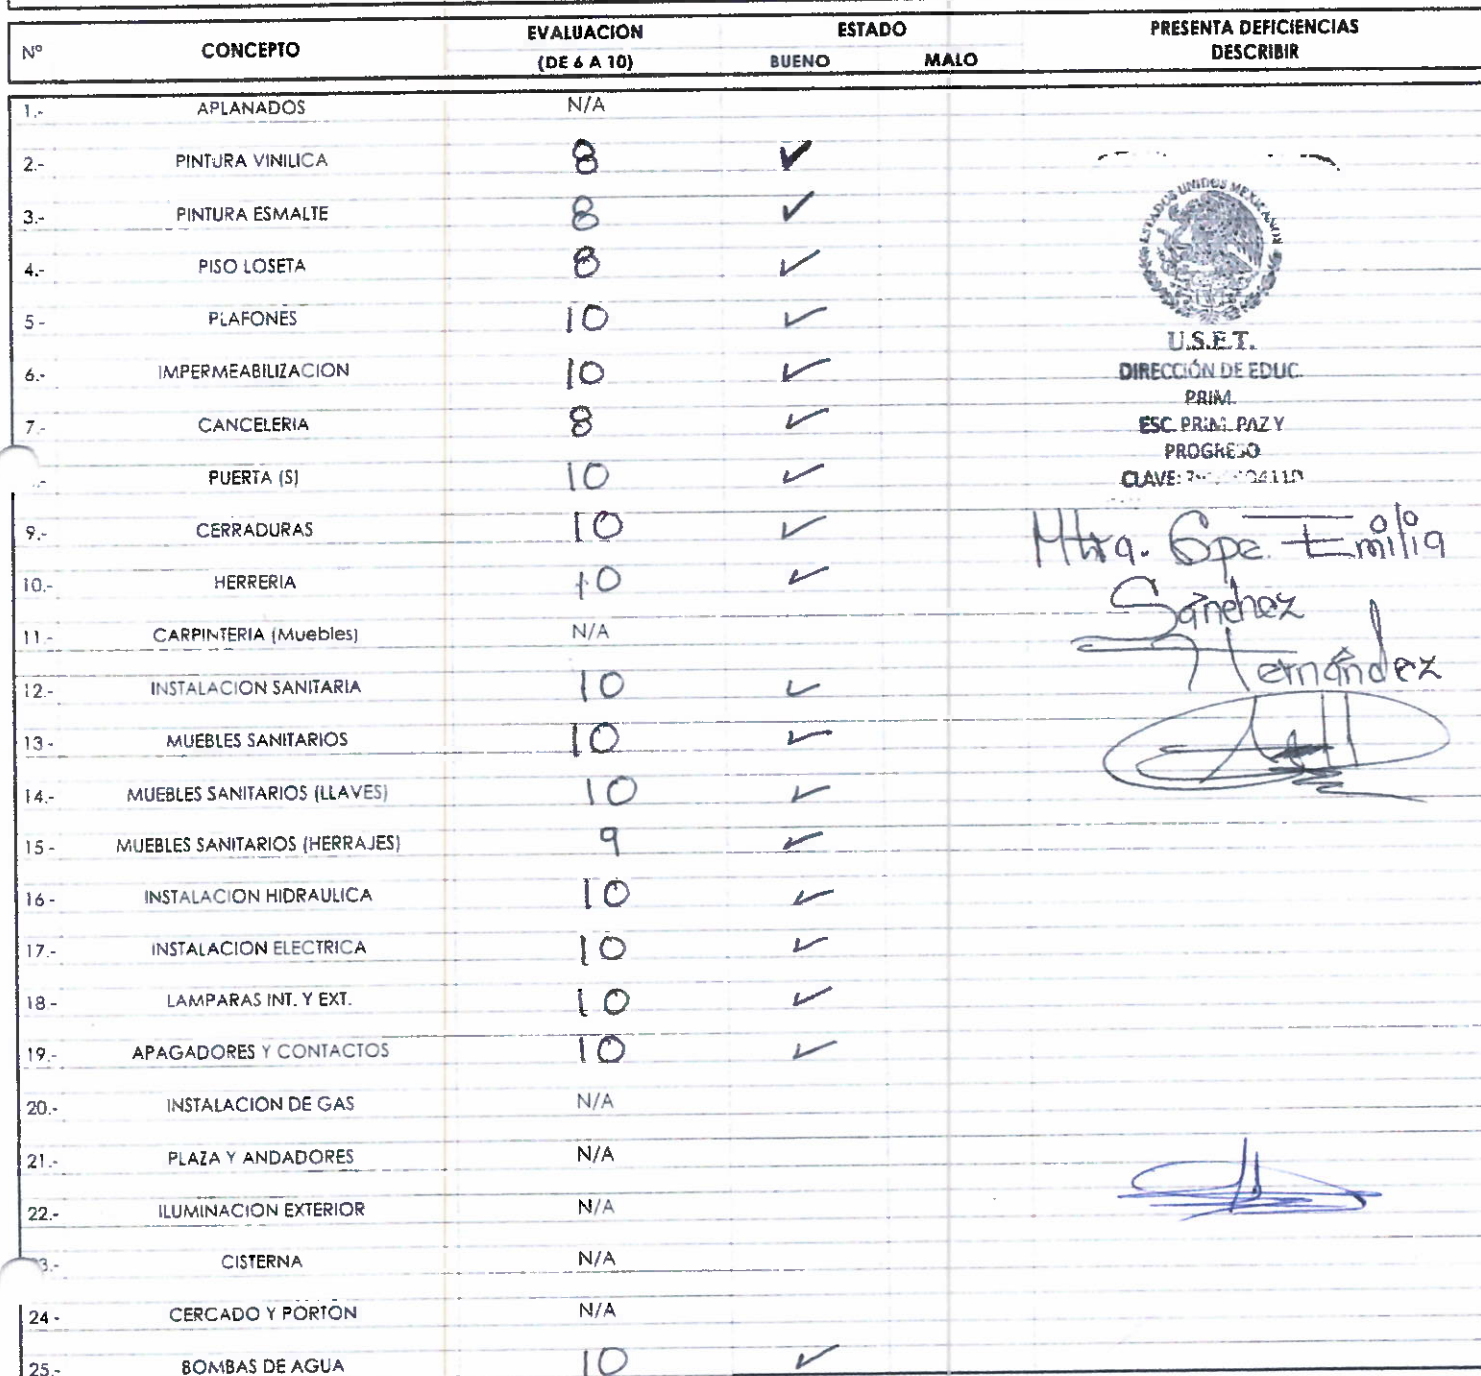 Nº CONCEPTO EVALUACION (DE 6 A 10) ESTADO BUENO MALO PRESENTA DEFICIENCIAS DESCRIBIR
1.- APLANADOS N/A
2.- PINTURA VINILICA 8 ✓
3.- PINTURA ESMALTE 8 ✓
4.- PISO LOSETA 8 ✓
5- PLAFONES 10 ✓
6.- IMPERMEABILIZACION 10 ✓
7.- CANCELERIA 8 ✓
PUERTA (S) 10 ✓
9.- CERRADURAS 10 ✓
10.- HERRERIA 10 ✓
11- CARPINTERIA (Muebles) N/A
12.- INSTALACION SANITARIA 10 ✓
13- MUEBLES SANITARIOS 10 ✓
14.- MUEBLES SANITARIOS (LLAVES) 10 ✓
15- MUEBLES SANITARIOS (HERRAJES) 9 ✓
16- INSTALACION HIDRAULICA 10 ✓
17.- INSTALACION ELECTRICA 10 ✓
18- LAMPARAS INT. Y EXT. 10 ✓
19.- APAGADORES Y CONTACTOS 10 ✓
20.- INSTALACION DE GAS N/A
21.- PLAZA Y ANDADORES N/A
22.- ILUMINACION EXTERIOR N/A
3.- CISTERNA N/A
24- CERCADO Y PORTON N/A
25.- BOMBAS DE AGUA 10 ✓
ESTADOS UNIDOS MEXICANOS
U.S.E.T.
DIRECCIÓN DE EDUC.
PRIM.
ESC. PRIM. PAZ Y
PROGRESO
CLAVE:
Mtra. Gpe. Emilia
Sánchez
Hernández